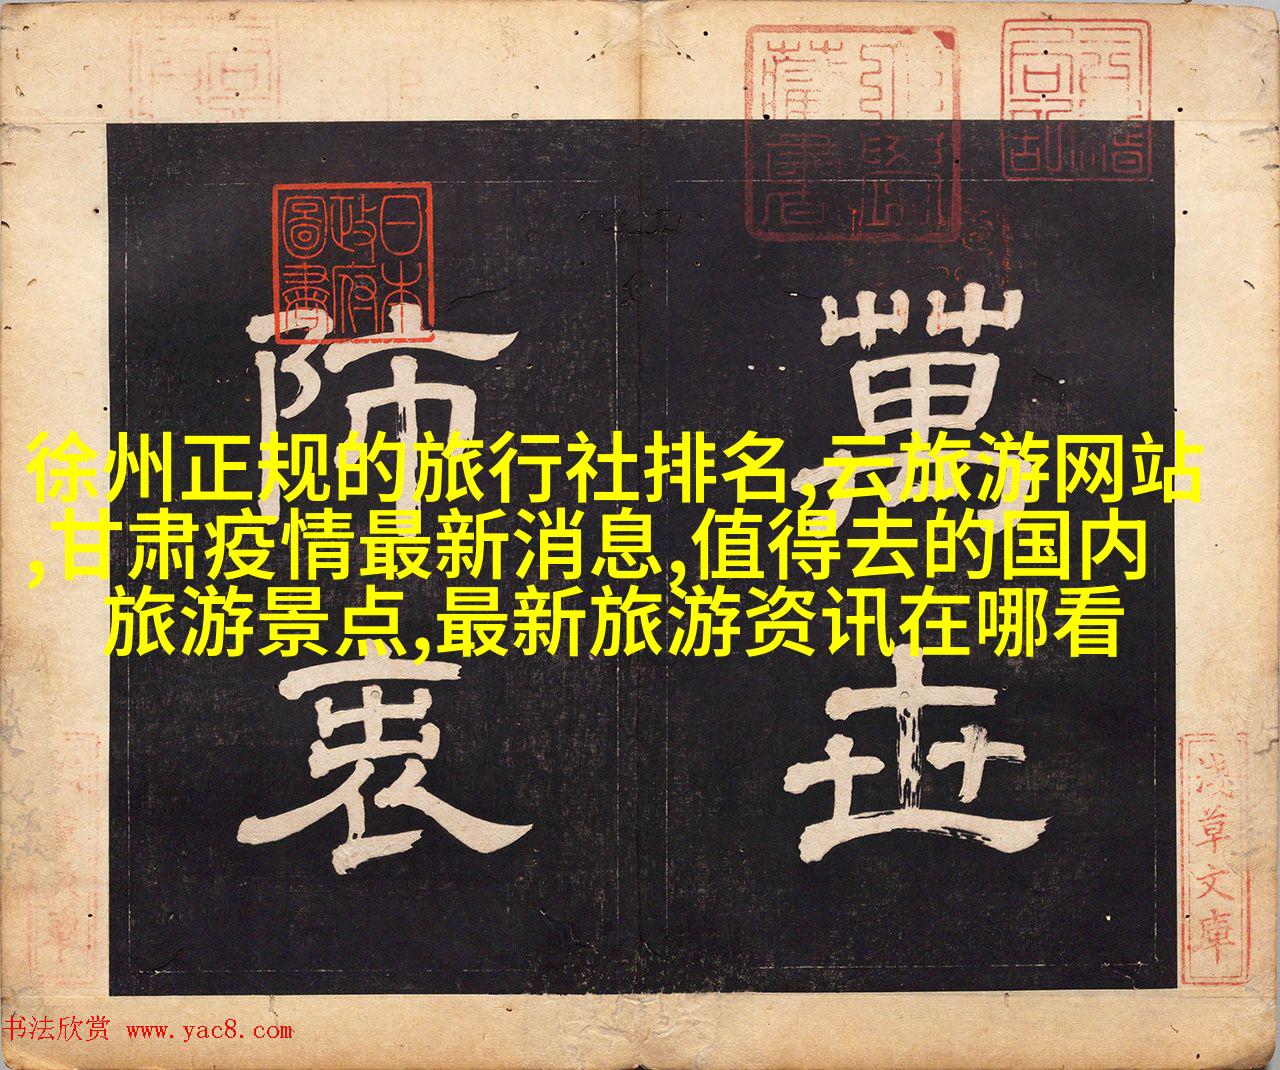 徐州正规的旅行社排名,云旅游网站
,甘肃疫情最新消息,值得去的国内
旅游景点,最新旅游资讯在哪看
萬世
師表
日本
政府
圖書
淺草文庫
书法欣赏 www.yac8.com